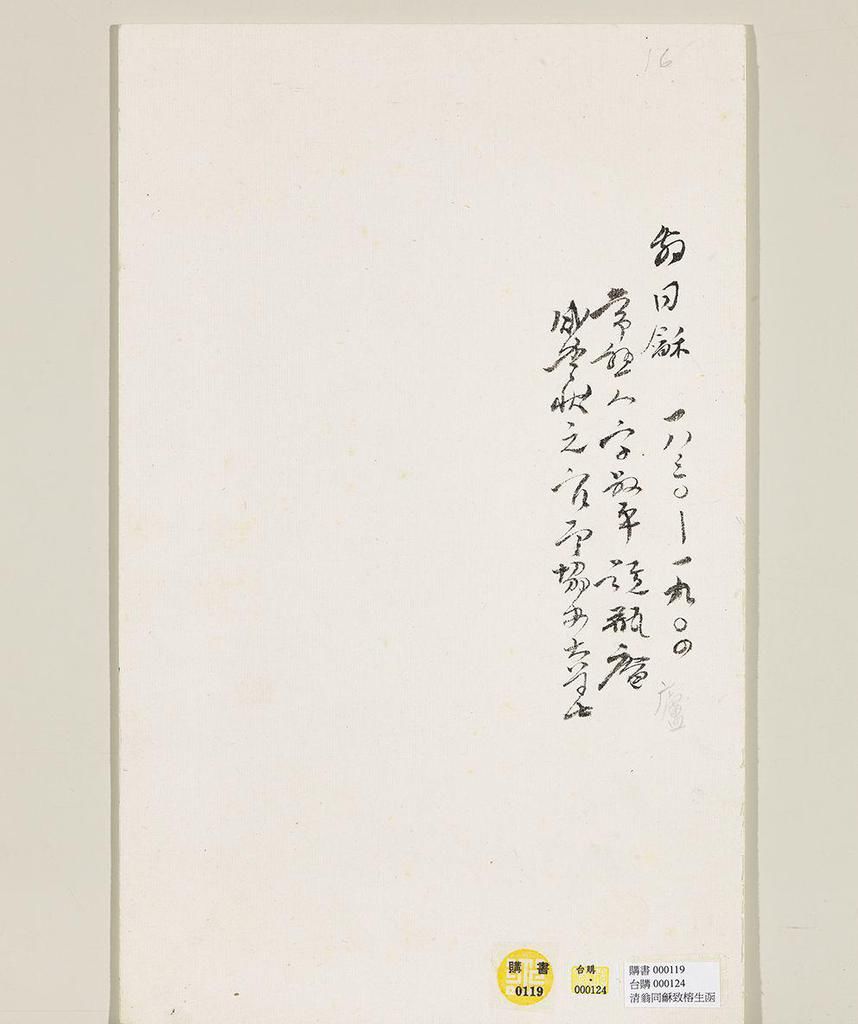 16
翁同龢 一八三〇—一九〇四
常熟人字叔平號瓶庵
咸豐狀元官至協办大学士
廬
購書
0119
台購
000124
購書 000119
台購 000124
清翁同龢致榕生函